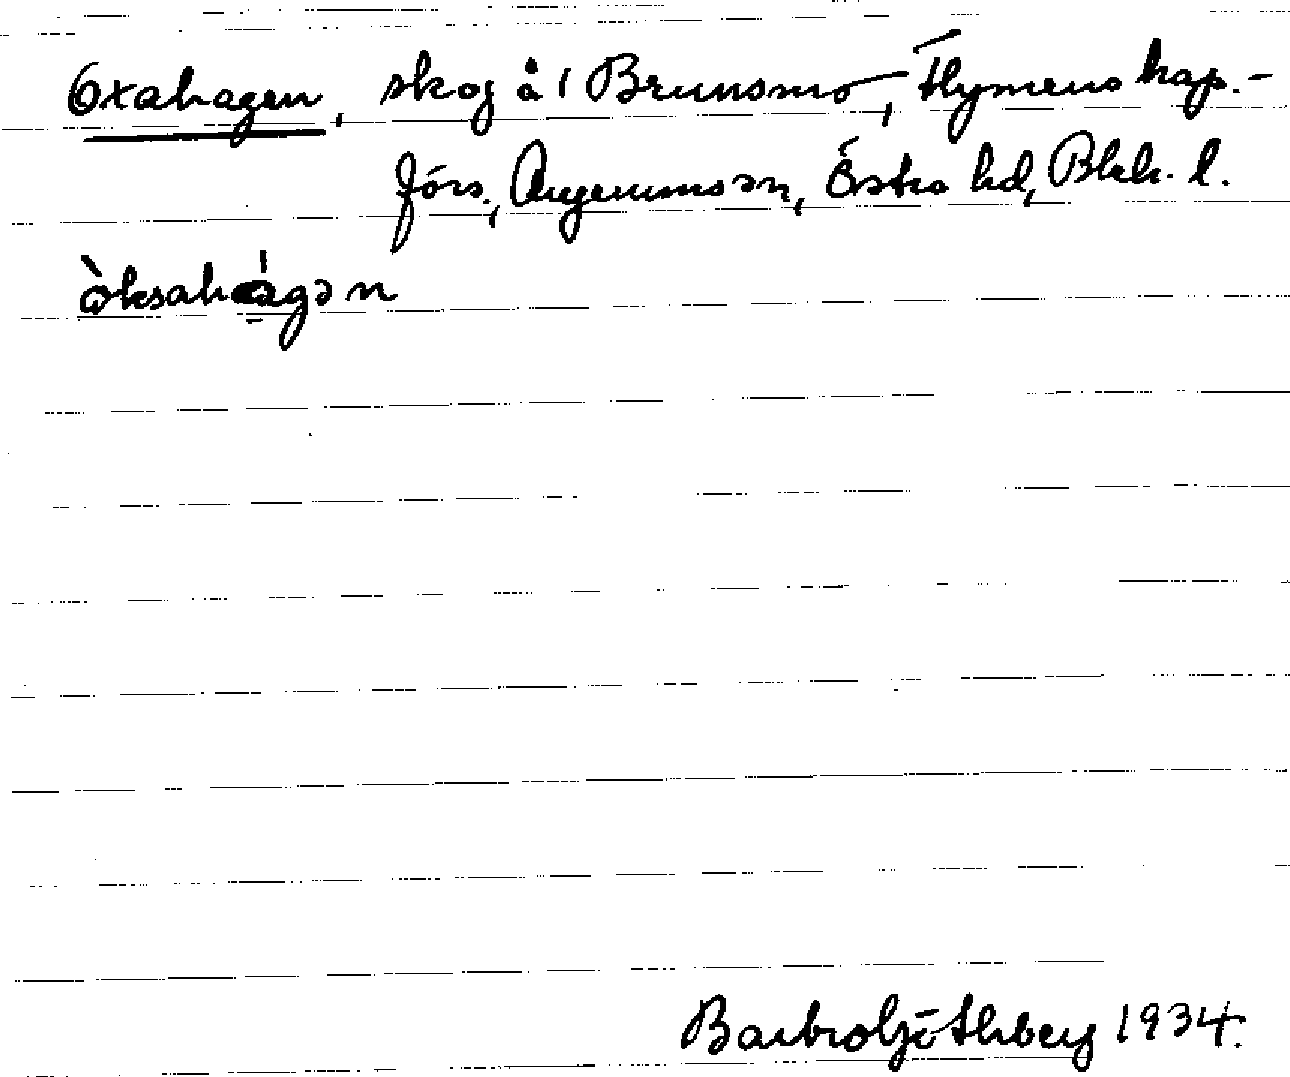 Oxahagen, skog å 1 Brunsmo, Flymens kap.-
förs., Augerums sn, Östra hd, Blek. l.
òksahágən
Barbro Götherberg 1934.